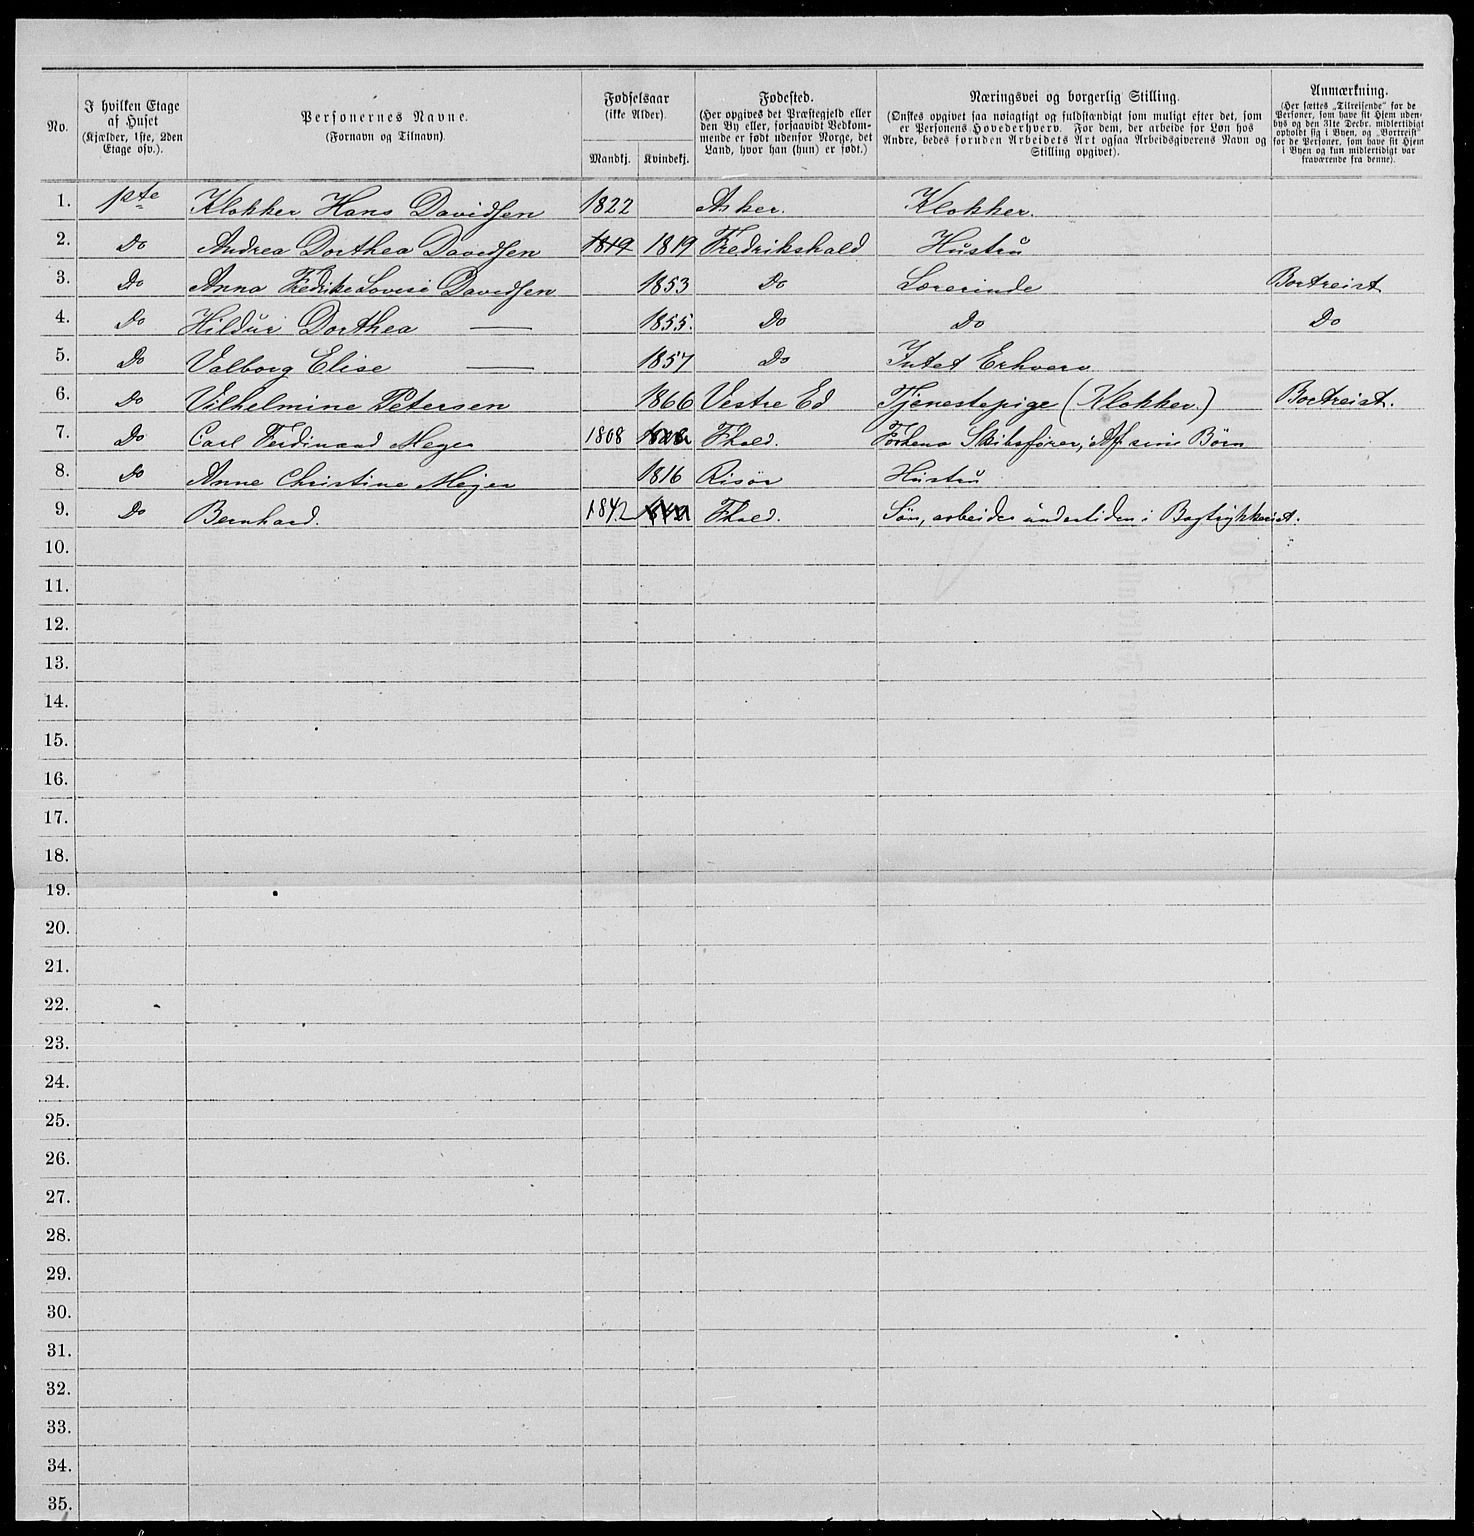 No.
I hvilken Etage
af Huset
(Kjælder, 1ste, 2den
Etage osv.).
Personernes Navne.
(Fornavn og Tilnavn).
Fødselsaar
(ikke Alder).
Mandkj. Kvindekj.
Fødested.
(Her opgives det Præstegjeld eller
den By eller, forsaavidt Vedkom-
mende er født udenfor Norge, det
Land, hvor han (hun) er født.)
Næringsvei og borgerlig Stilling.
(Ønskes opgivet saa nøiagtigt og fuldstændigt som muligt efter det, som
er Personens Hovederhverv. For dem, der arbeide for Løn hos
Andre, bedes foruden Arbeidets Art ogsaa Arbeidsgiverens Navn og
Stilling opgivet).
Anmærkning.
(Her sættes „Tilreisende” for de
Personer, som have sit Hjem uden-
bys og den 31te Decbr. midlertidigt
opholdt sig i Byen, og „Bortreist”
for de Personer, som have sit Hjem
i Byen og kun midlertidigt var
fraværende fra denne).
1. 1ste Klokker Hans Davidsen 1822 Asker. Klokker.
2. Do Andrea Dorthea Davidsen 1819 1819 Fredrikshald Hustru
3. Do Anna Fredrike Lovise Davidsen 1853 Do Lærerinde Bortreist
4. Do Hildur Dorthea — 1855. Do Do Do
5. Do Valborg Elise — 1857 Do Intet Erhverv
6. Do Vilhelmine Petersen 1866 Vestre Ed Tjenestepige (Klokker.) Bortreist.
7. Do Carl Ferdinand Meyer 1808 Fhald. Forhens Skibsfører, Af sine Børn
8. Do Anne Christine Meyer 1816 Risör Hustru
9. Do Bernhard. 1842 Fhald. Søn, arbeider undertiden i Bogtrykkeriet.
10.
11.
12.
13.
14.
15.
16.
17.
18.
19.
20.
21.
22.
23.
24.
25.
26.
27.
28.
29.
30.
31.
32.
33.
34.
35.